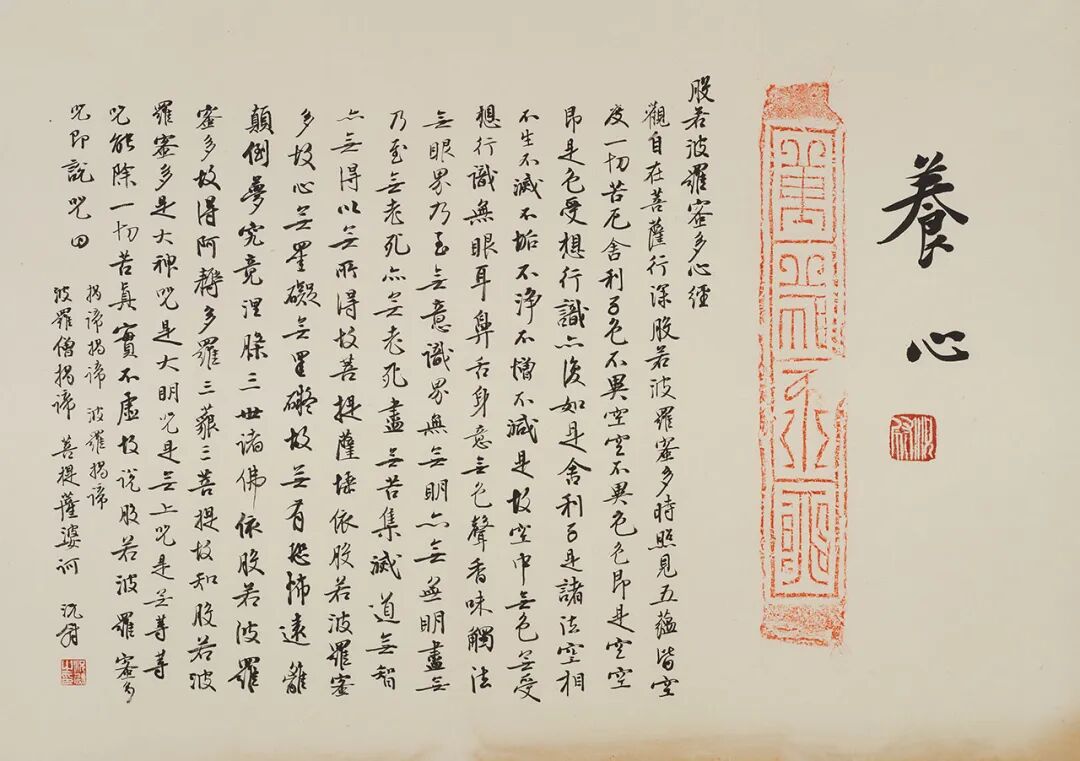 養心
般若波羅蜜多心經
觀自在菩薩行深般若波羅蜜多時照見五蘊皆空
度一切苦厄舍利子色不異空空不異色色即是空空
即是色受想行識亦復如是舍利子是諸法空相
不生不滅不垢不淨不增不減是故空中無色無受
想行識無眼耳鼻舌身意無色聲香味觸法
無眼界乃至無意識界無無明亦無無明盡無
乃至無老死亦無老死盡無苦集滅道無智
亦無得以無所得故菩提薩埵依般若波羅蜜
多故心無罣礙無罣礙故無有恐怖遠離
顛倒夢究竟涅槃三世諸佛依般若波羅
蜜多故得阿耨多羅三藐三菩提故知般若波
羅蜜多是大神咒是大明咒是無上咒是無等等
咒能除一切苦真實不虛故說般若波羅蜜多
咒即說咒曰
揭諦揭諦 波羅揭諦
波羅僧揭諦 菩提薩婆訶